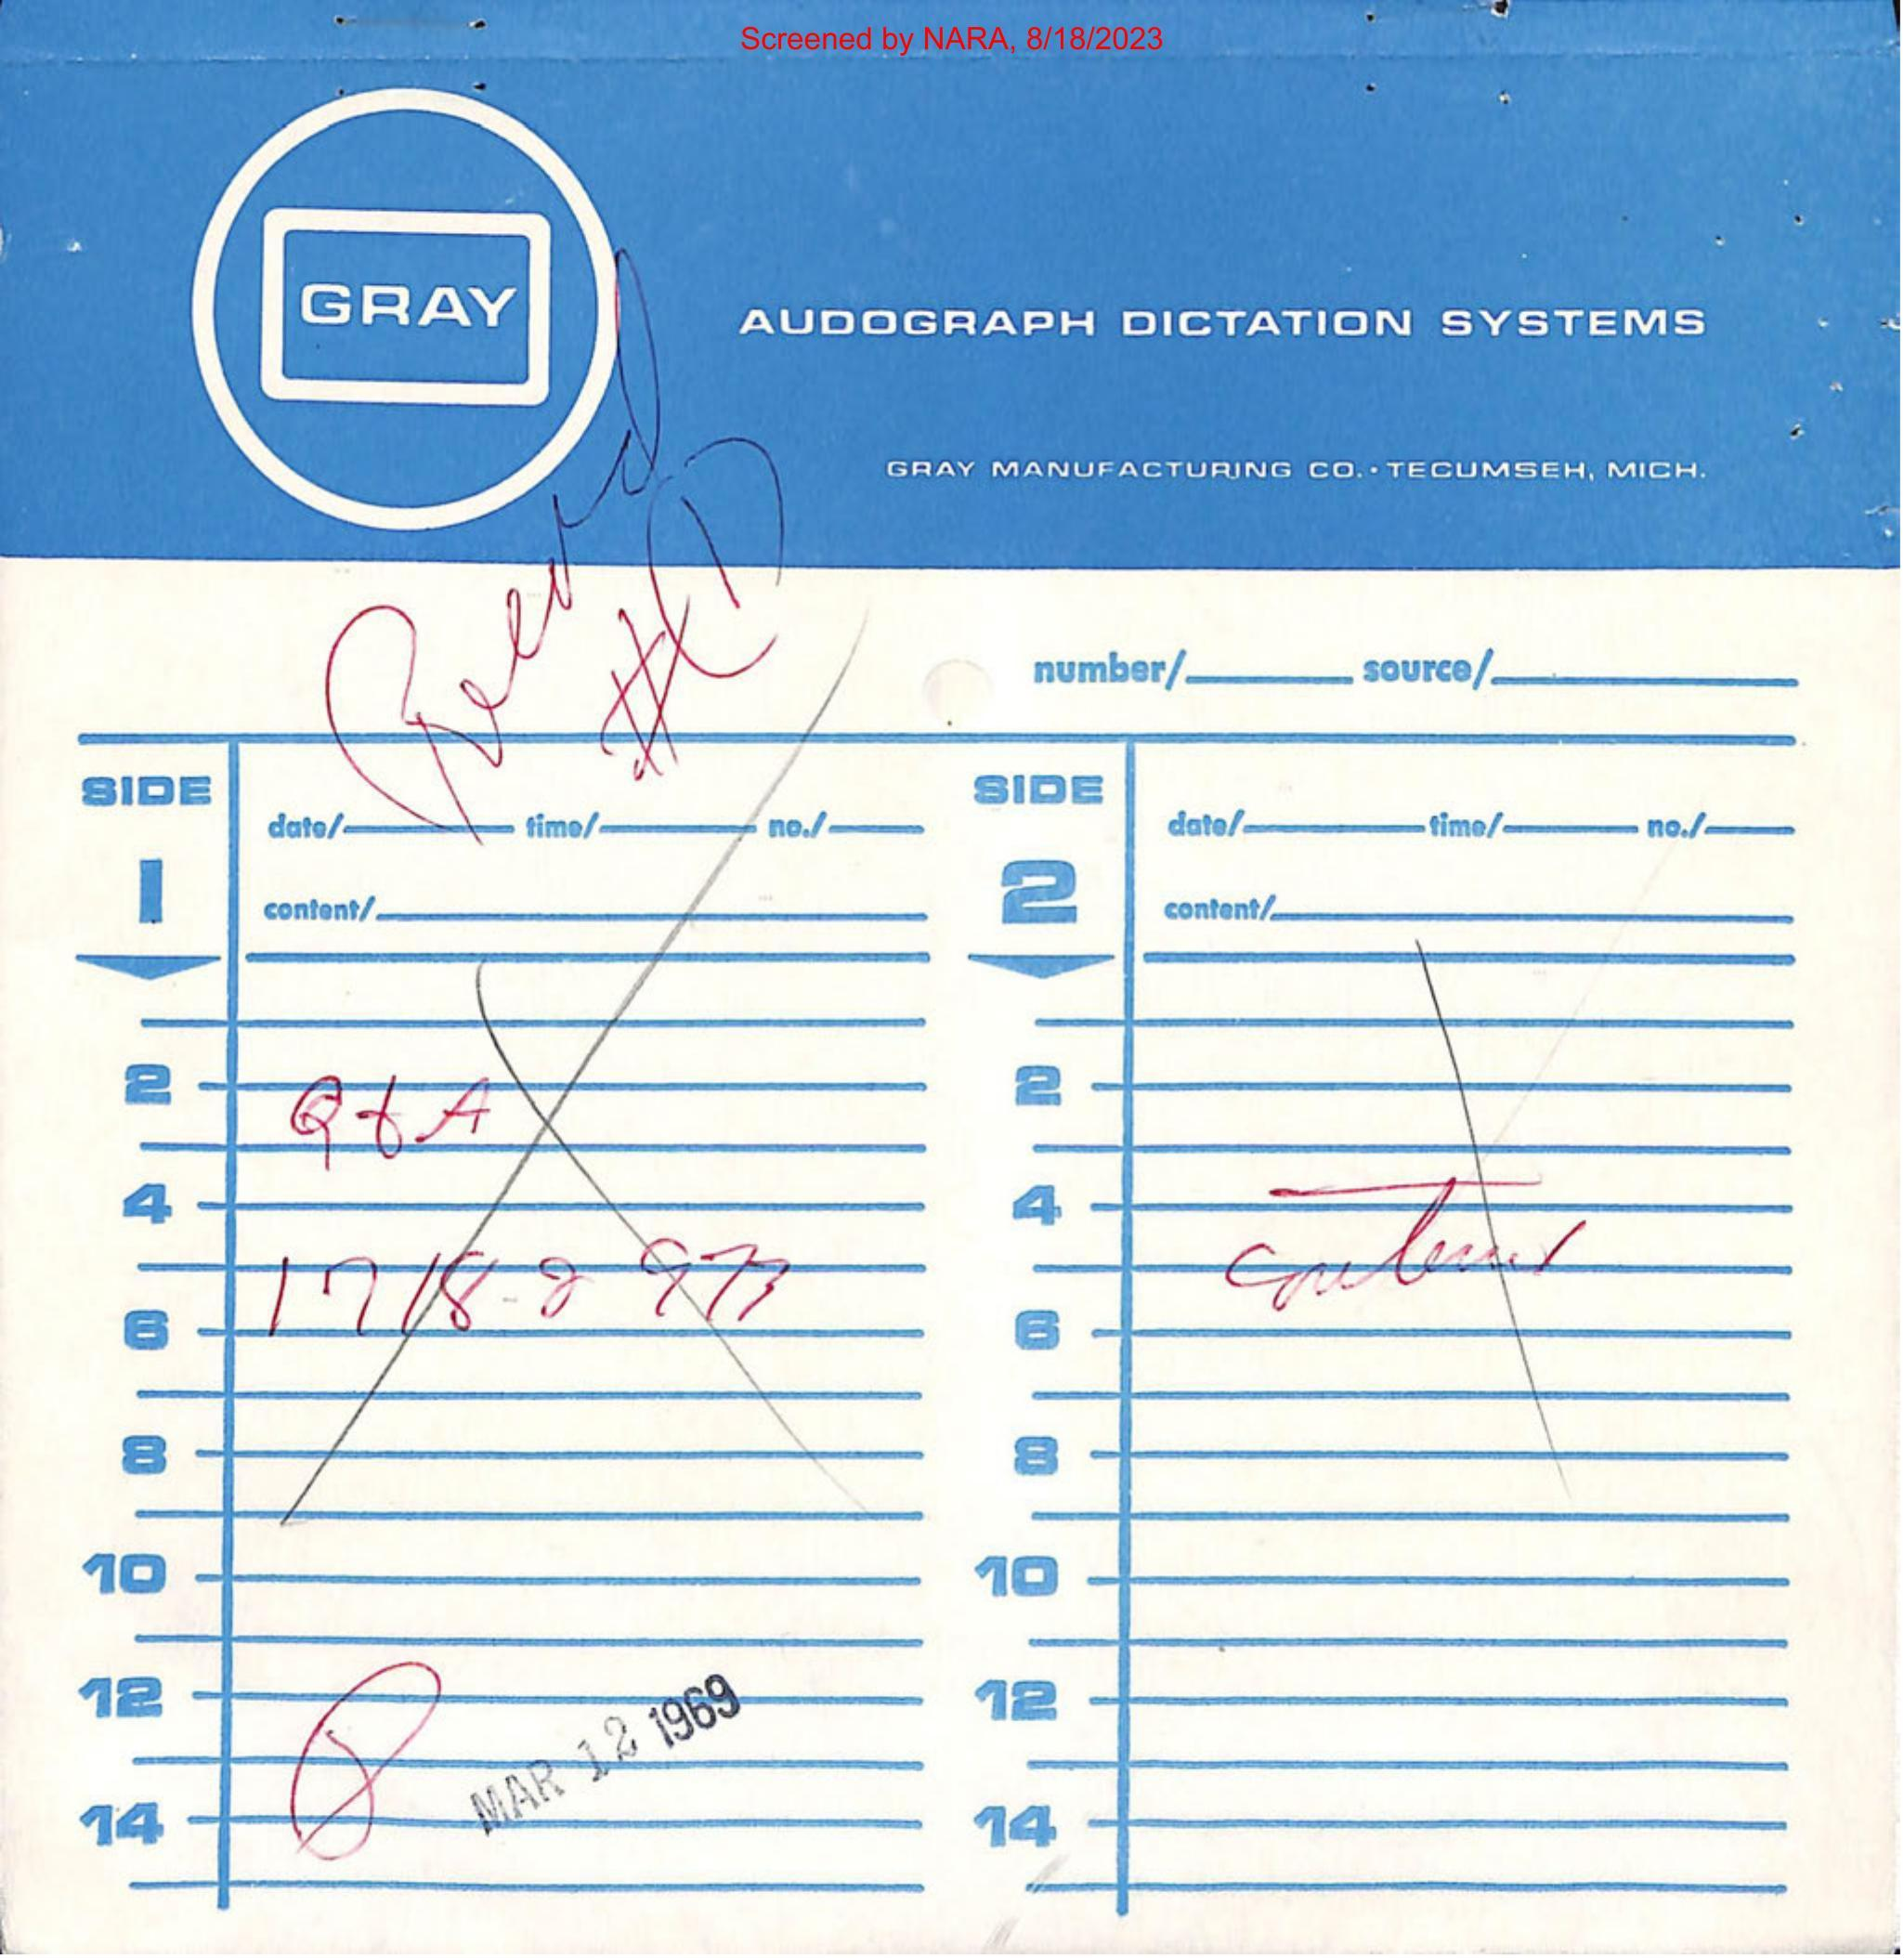 Screened by NARA, 8/18/2023
GRAY
AUDOGRAPH DICTATION SYSTEMS
GRAY MANUFACTURING CO. • TECUMSEH, MICH.
Record
#1
number/ source/
SIDE
1
date/ time/ no./
content/
2
Q & A
4
6
8
10
12
14
MAR 12 1969
SIDE
2
date/ time/ no./
content/
2
4
6
8
10
12
14